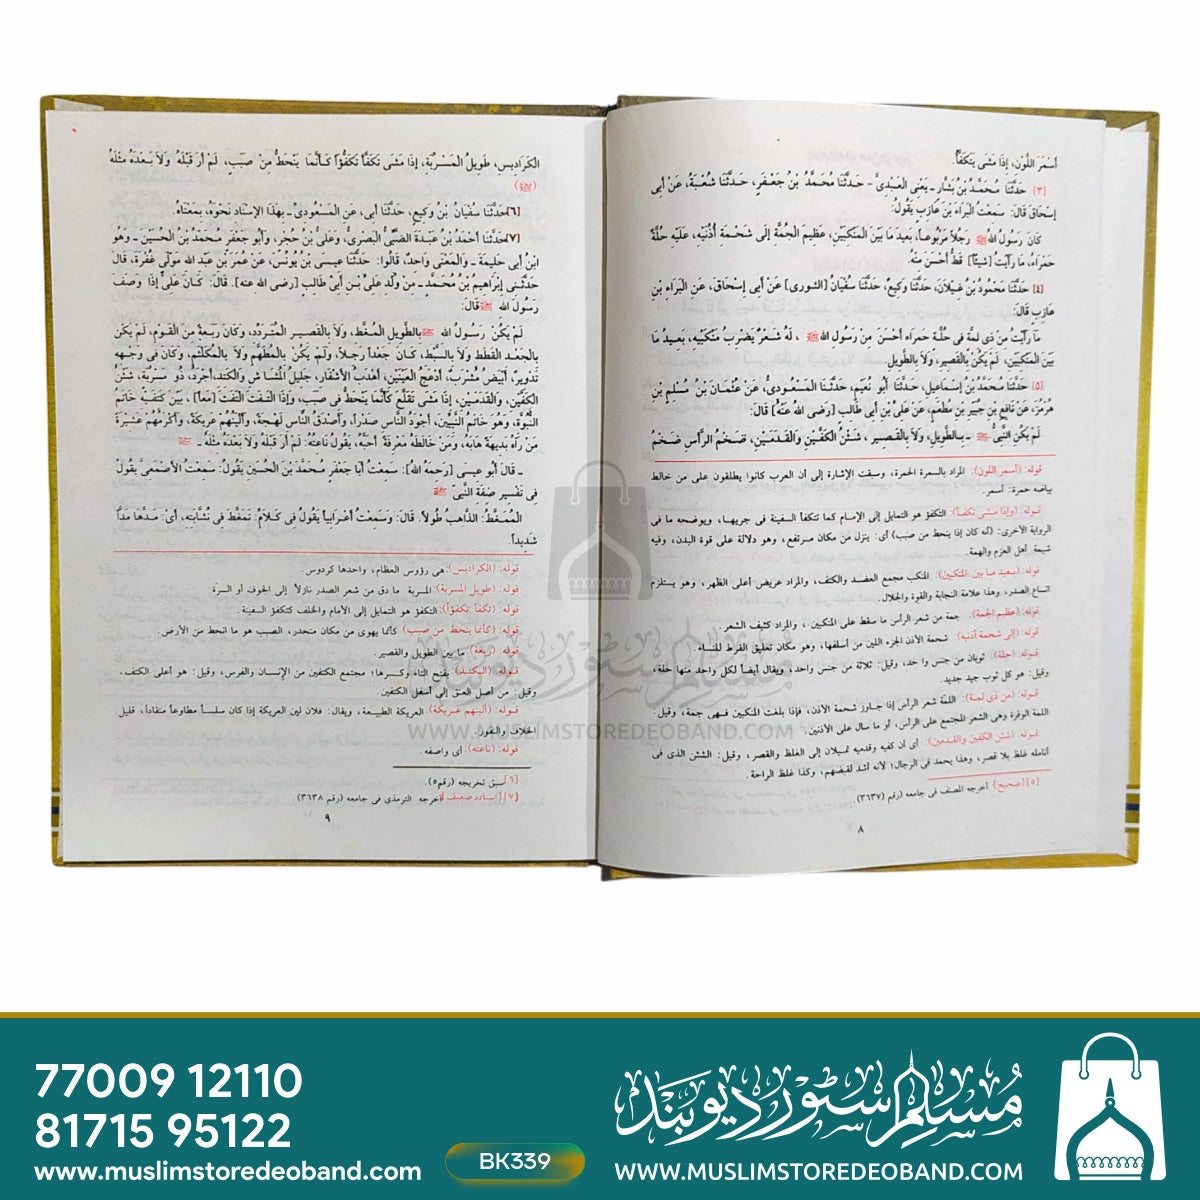 أَسْمَرَ اللَّوْنِ، إِذَا مَشَى يَتَكَفَّأُ.
[٣] حَدَّثَنَا مُحَمَّدُ بْنُ بَشَّار ـ يَعْنِى الْعَبْدِىَّ ـ حَدَّثَنَا مُحَمَّدُ بْنُ جَعْفَرٍ، حَدَّثَنَا شُعْبَةُ، عَنْ أَبِى
إِسْحَاقَ قَالَ: سَمِعْتُ الْبَرَاءَ بْنَ عَازِبٍ يَقُولُ:
كَانَ رَسُولُ اللهِ ﷺ رَجُلاً مَرْبُوعاً، بَعِيدَ مَا بَيْنَ الْمَنْكِبَيْنِ، عَظِيمَ الْجُمَّةِ إِلَى شَحْمَةِ أُذُنَيْهِ، عَلَيْهِ حُلَّةٌ
حَمْرَاءُ، مَا رَأَيْتُ [شيئًا] قَطُّ أَحْسَنَ مِنْهُ.
[٤] حَدَّثَنَا مَحْمُودُ بْنُ غَيْلَانَ، حَدَّثَنَا وَكِيعٌ، حَدَّثَنَا سُفْيَانُ [الثورى] عَنْ أَبِى إِسْحَاقَ، عَنِ الْبَرَاءِ بْنِ
عَازِبٍ قَالَ:
مَا رَأَيْتُ مِنْ ذِى لِمَّةٍ فِى حُلَّةٍ حَمْرَاءَ أَحْسَنَ مِنْ رَسُولِ اللهِ ﷺ ، لَهُ شَعْرٌ يَضْرِبُ مَنْكِبَيْهِ، بَعِيدُ مَا
بَيْنَ الْمَنْكِبَيْنِ، لَمْ يَكُنْ بِالْقَصِيرِ، وَلَا بِالطَّوِيلِ.
[٥] حَدَّثَنَا مُحَمَّدُ بْنُ إِسْمَاعِيلَ، حَدَّثَنَا أَبُو نُعَيْمٍ، حَدَّثَنَا الْمَسْعُودِىُّ، عَنْ عُثْمَانَ بْنِ مُسْلِمِ بْنِ
هُرْمُزَ، عَنْ نَافِعِ بْنِ جُبَيْرِ بْنِ مُطْعِمٍ، عَنْ عَلِىِّ بْنِ أَبِى طَالِبٍ [رَضِى اللهُ عَنْهُ] قَالَ:
لَمْ يَكُنِ النَّبِىُّ ﷺ ـ بِالطَّوِيلِ، وَلَا بِالْقَصِيرِ، شَثْنُ الْكَفَّيْنِ وَالْقَدَمَيْنِ، ضَخْمُ الرَّأْسِ ضَخْمُ
قوله: (أسمر اللون): المراد بالسمرة الحمرة، وسبقت الإشارة إلى أن العرب كانوا يطلقون على من خالط
بياضه حمرة: أسمر.
قوله: (وإذا مشى تكفأ): التكفؤ هو التمايل إلى الإمام كما تتكفأ السفينة فى جريها، ويوضحه ما فى
الرواية الأخرى: (أنه كان إذا ينحط من صبب) أى: ينزل من مكان مرتفع، وهو دلالة على قوة البدن، وفيه
شيمة أهل العزم والهمة.
قوله: (بعيد ما بين المنكبين): المنكب مجمع العضد والكتف، والمراد عريض أعلى الظهر، وهو يستلزم
اتساع الصدر، وهذا علامة النجابة والقوة والجلال.
قوله: (عظيم الجمة): جمة من شعر الرأس ما سقط على المنكبين ، والمراد كثيف الشعر.
قوله: (إلى شحمة أذنيه): شحمة الأذن الجزء اللين من أسفلها، وهو مكان تعليق القرط للنساء.
قوله: (حلة): ثوبان من جنس واحد، وقيل: ثلاثة من جنس واحد، ويقال أيضاً لكل واحد منها حلة،
وقيل: هو كل ثوب جيد جديد.
قوله: (من ذى لمة): اللمة شعر الرأس إذا جاوز شحمة الأذن، فإذا بلغت المنكبين فهى جمة، وقيل:
اللمة الوفرة وهى الشعر المجتمع على الرأس، أو ما سال على الأذنين.
قوله: (شثن الكفين والقدمين): أى أن كفيه وقدميه تميلان إلى الغلظ والقصر، وقيل: الشثن الذى فى
أنامله غلظ بلا قصر، وهذا يحمد فى الرجال؛ لأنه أشد لقبضهم، وكذا غلظ الراحة.
[٥] [صحيح] أخرجه المصنف فى جامعه (رقم ٣٦٣٧).
٨
الْكَرَادِيسِ، طَوِيلُ الْمَسْرُبَةِ، إِذَا مَشَى تَكَفَّأَ تَكَفُّؤاً كَأَنَّمَا يَنْحَطُّ مِنْ صَبَبٍ، لَمْ أَرَ قَبْلَهُ وَلَا بَعْدَهُ مِثْلَهُ
(ﷺ)
[٦] حَدَّثَنَا سُفْيَانُ بْنُ وَكِيعٍ، حَدَّثَنَا أَبِى، عَنِ الْمَسْعُودِىِّ ـ بِهَذَا الْإِسْنَادِ نَحْوَهُ، بِمَعْنَاهُ.
[٧] حَدَّثَنَا أَحْمَدُ بْنُ عَبْدَةَ الضَّبِّىُّ الْبَصْرِى، وَعَلِىُّ بْنُ حُجْرٍ، وَأَبُو جَعْفَرٍ مُحَمَّدُ بْنُ الْحُسَيْنِ ـ وَهُوَ
ابْنُ أَبِى حَلِيمَةَ ـ وَالْمَعْنَى وَاحِدٌ، قَالُوا: حَدَّثَنَا عِيسَى بْنُ يُونُسَ، عَنْ عُمَرَ بْنِ عَبْدِ اللهِ مَوْلَى غُفْرَةَ، قَالَ
حَدَّثَنِى إِبْرَاهِيمُ بْنُ مُحَمَّدٍ ـ مِنْ وَلَدِ عَلِىِّ بْنِ أَبِى طَالِبٍ [رضى الله عنه]. قَالَ: كَانَ عَلِىٌّ إِذَا وَصَفَ
رَسُولَ اللهِ ﷺ قَالَ:
لَمْ يَكُنْ رَسُولُ اللهِ ﷺ بِالطَّوِيلِ الْمُمَّغِطِ، وَلَا بِالْقَصِيرِ الْمُتَرَدِّدِ، وَكَانَ رَبْعَةً مِنَ الْقَوْمِ، لَمْ يَكُنْ
بِالْجَعْدِ الْقَطَطِ وَلَا بِالسَّبْطِ، كَانَ جَعْداً رَجِلاً، وَلَمْ يَكُنْ بِالْمُطَهَّمِ وَلَا بِالْمُكَلْثَمِ، وَكَانَ فِى وَجْهِهِ
تَدْوِيرٌ، أَبْيَضُ مُشْرَبٌ، أَدْعَجُ الْعَيْنَيْنِ، أَهْدَبُ الْأَشْفَارِ، جَلِيلُ الْمُشَاشِ وَالْكَتَدِ، أَجْرَدُ، ذُو مَسْرُبَةٍ، شَثْنُ
الْكَفَّيْنِ، وَالْقَدَمَيْنِ، إِذَا مَشَى تَقَلَّعَ كَأَنَّمَا يَنْحَطُّ فِى صَبَبٍ، وَإِذَا الْتَفَتَ الْتَفَتَ [مَعاً] ، بَيْنَ كَتِفَيْهِ خَاتَمُ
النُّبُوَّةِ، وَهُوَ خَاتَمُ النَّبِيِّينَ، أَجْوَدُ النَّاسِ صَدْراً، وَأَصْدَقُ النَّاسِ لَهْجَةً، وَأَلْيَنُهُمْ عَرِيكَةً، وَأَكْرَمُهُمْ عَشِيرَةً
مَنْ رَآهُ بَدِيهَةً هَابَهُ، وَمَنْ خَالَطَهُ مَعْرِفَةً أَحَبَّهُ، يَقُولُ نَاعِتُهُ: لَمْ أَرَ قَبْلَهُ وَلَا بَعْدَهُ مِثْلَهُ ـ ﷺ
ـ قَالَ أَبُو عِيسَى [رَحِمَهُ اللهُ]: سَمِعْتُ أَبَا جَعْفَرٍ مُحَمَّدَ بْنَ الْحُسَيْنِ يَقُولُ: سَمِعْتُ الْأَصْمَعِىَّ يَقُولُ
فِى تَفْسِيرِ صِفَةِ النَّبِىِّ ﷺ
الْمُمَّغِطُ: الذَّاهِبُ طُولاً. قَالَ: وَسَمِعْتُ أَعْرَابِياً يَقُولُ فِى كَلَامِهِ: تَمَغَّطَ فِى نُشَّابَتِهِ، أَىْ: مَدَّهَا مَدًّا
شَدِيداً.
قوله: (الكراديس): هى رؤوس العظام، واحدها كردوس.
قوله: (طويل المسربة): المسربة ما دق من شعر الصدر نازلاً إلى الجوف أو السرة
قوله: (تكفأ تكفؤاً): التكفؤ هو التمايل إلى الأمام والخلف كتكفؤ السفينة.
قوله: (كأنما ينحط من صبب) كأنما يهوى من مكان منحدر، الصبب هو ما انحط من الأرض.
قوله: (ربعة): ما بين الطويل والقصير.
قوله: (الكتد): بفتح التاء وكسرها؛ مجتمع الكتفين من الإنسان والفرس، وقيل: هو أعلى الكتف،
وقيل: من أصل العنق إلى أسفل الكتفين.
قوله: (ألينهم عريكة): العريكة الطبيعة، ويقال: فلان لين العريكة إذا كان سلساً مطاوعاً منقاداً، قليل
الخلاف والنفور.
قوله: (ناعته): أى واصفه.
[٦] سبق تخريجه (رقم٥).
[٧] [إسناده ضعيف] أخرجه الترمذى فى جامعه (رقم ٣٦٣٨).
٩
مسلم سٹور دیوبند
WWW.MUSLIMSTOREDEOBAND.COM
77009 12110
81715 95122
www.muslimstoredeoband.com
BK339
مسلم سٹور دیوبند
WWW.MUSLIMSTOREDEOBAND.COM